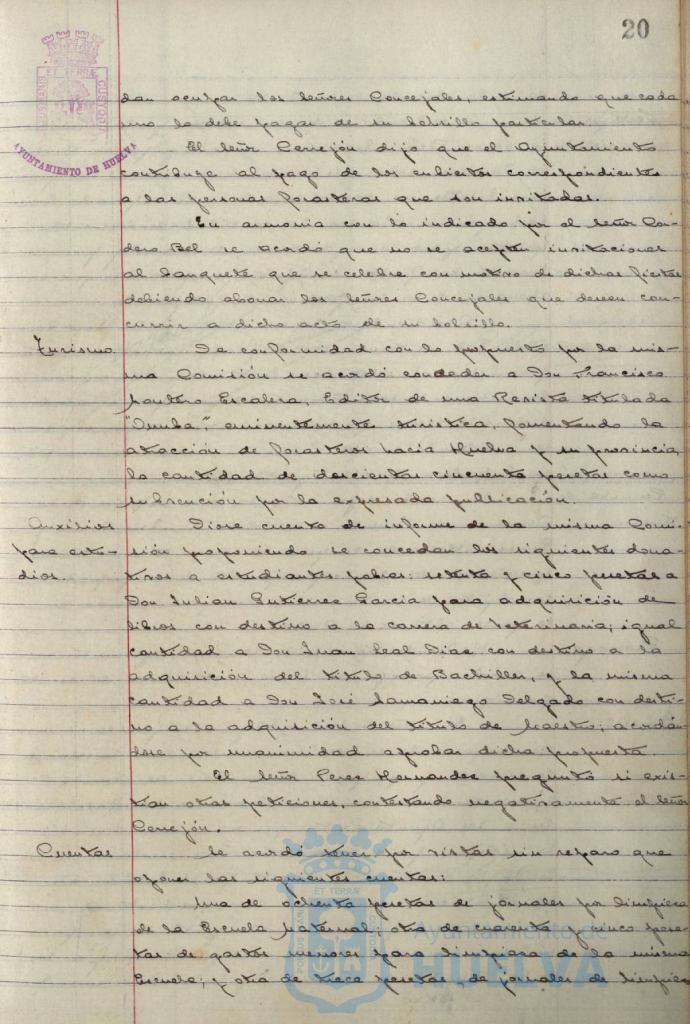 20
PORTUS MARIS ET TERRAE CUSTODIA
AYUNTAMIENTO DE HUELVA
dan ocupar los señores Concejales, estimando que cada
uno lo debe pagar de su bolsillo particular.
El Señor Cerrejón dijo que el Ayuntamiento
contribuye al pago de los cubiertos correspondientes
a las personas forasteras que son invitadas.
En armonia con lo indicado por el Señor Cor-
dero Bel se acordó que no se acepten invitaciones
al banquete que se celebre con motivo de dichas fiestas
debiendo abonar los Señores Concejales que deseen con-
currir a dicho acto de su bolsillo.
Turismo. De conformidad con lo propuesto por la mis-
ma Comisión se acordó conceder a Don Francisco
Montero Escalera, Editor de una Revista titulada
"Onuba", eminentemente turistica, fomentando la
atracción de forasteros hacia Huelva y su provincia,
la cantidad de doscientas cincuenta pesetas como
subvención por la expresada publicación.
Auxilios Diose cuenta de informe de la misma Comi-
para estu- sión proponiendo se concedan los siguientes dona-
dios. tivos a estudiantes pobres: setenta y cinco pesetas a
Don Julian Gutierrez Garcia para adquisición de
libros con destino a la carrera de Veterinaria; igual
cantidad a Don Juan Leal Diaz con destino a la
adquisición del titulo de Bachiller, y la misma
cantidad a Don José Samaniego Delgado con desti-
no a la adquisición del titulo de Maestro; acordán-
dose por unanimidad aprobar dicha propuesta.
El Señor Perez Hernandez preguntó si exis-
tian otras peticiones, contestando negativamente el Señor
Cerrejón.
Cuentas Se acordó tener por vistas sin reparo que
oponer las siguientes cuentas:
Una de ochenta pesetas de jornales por limpieza
de la Escuela Maternal; otra de cuarenta y cinco pese-
tas de gastos menores para limpieza de la misma
Escuela; y otra de trece pesetas, de jornales de limpieza
Ayuntamiento de
HUELVA